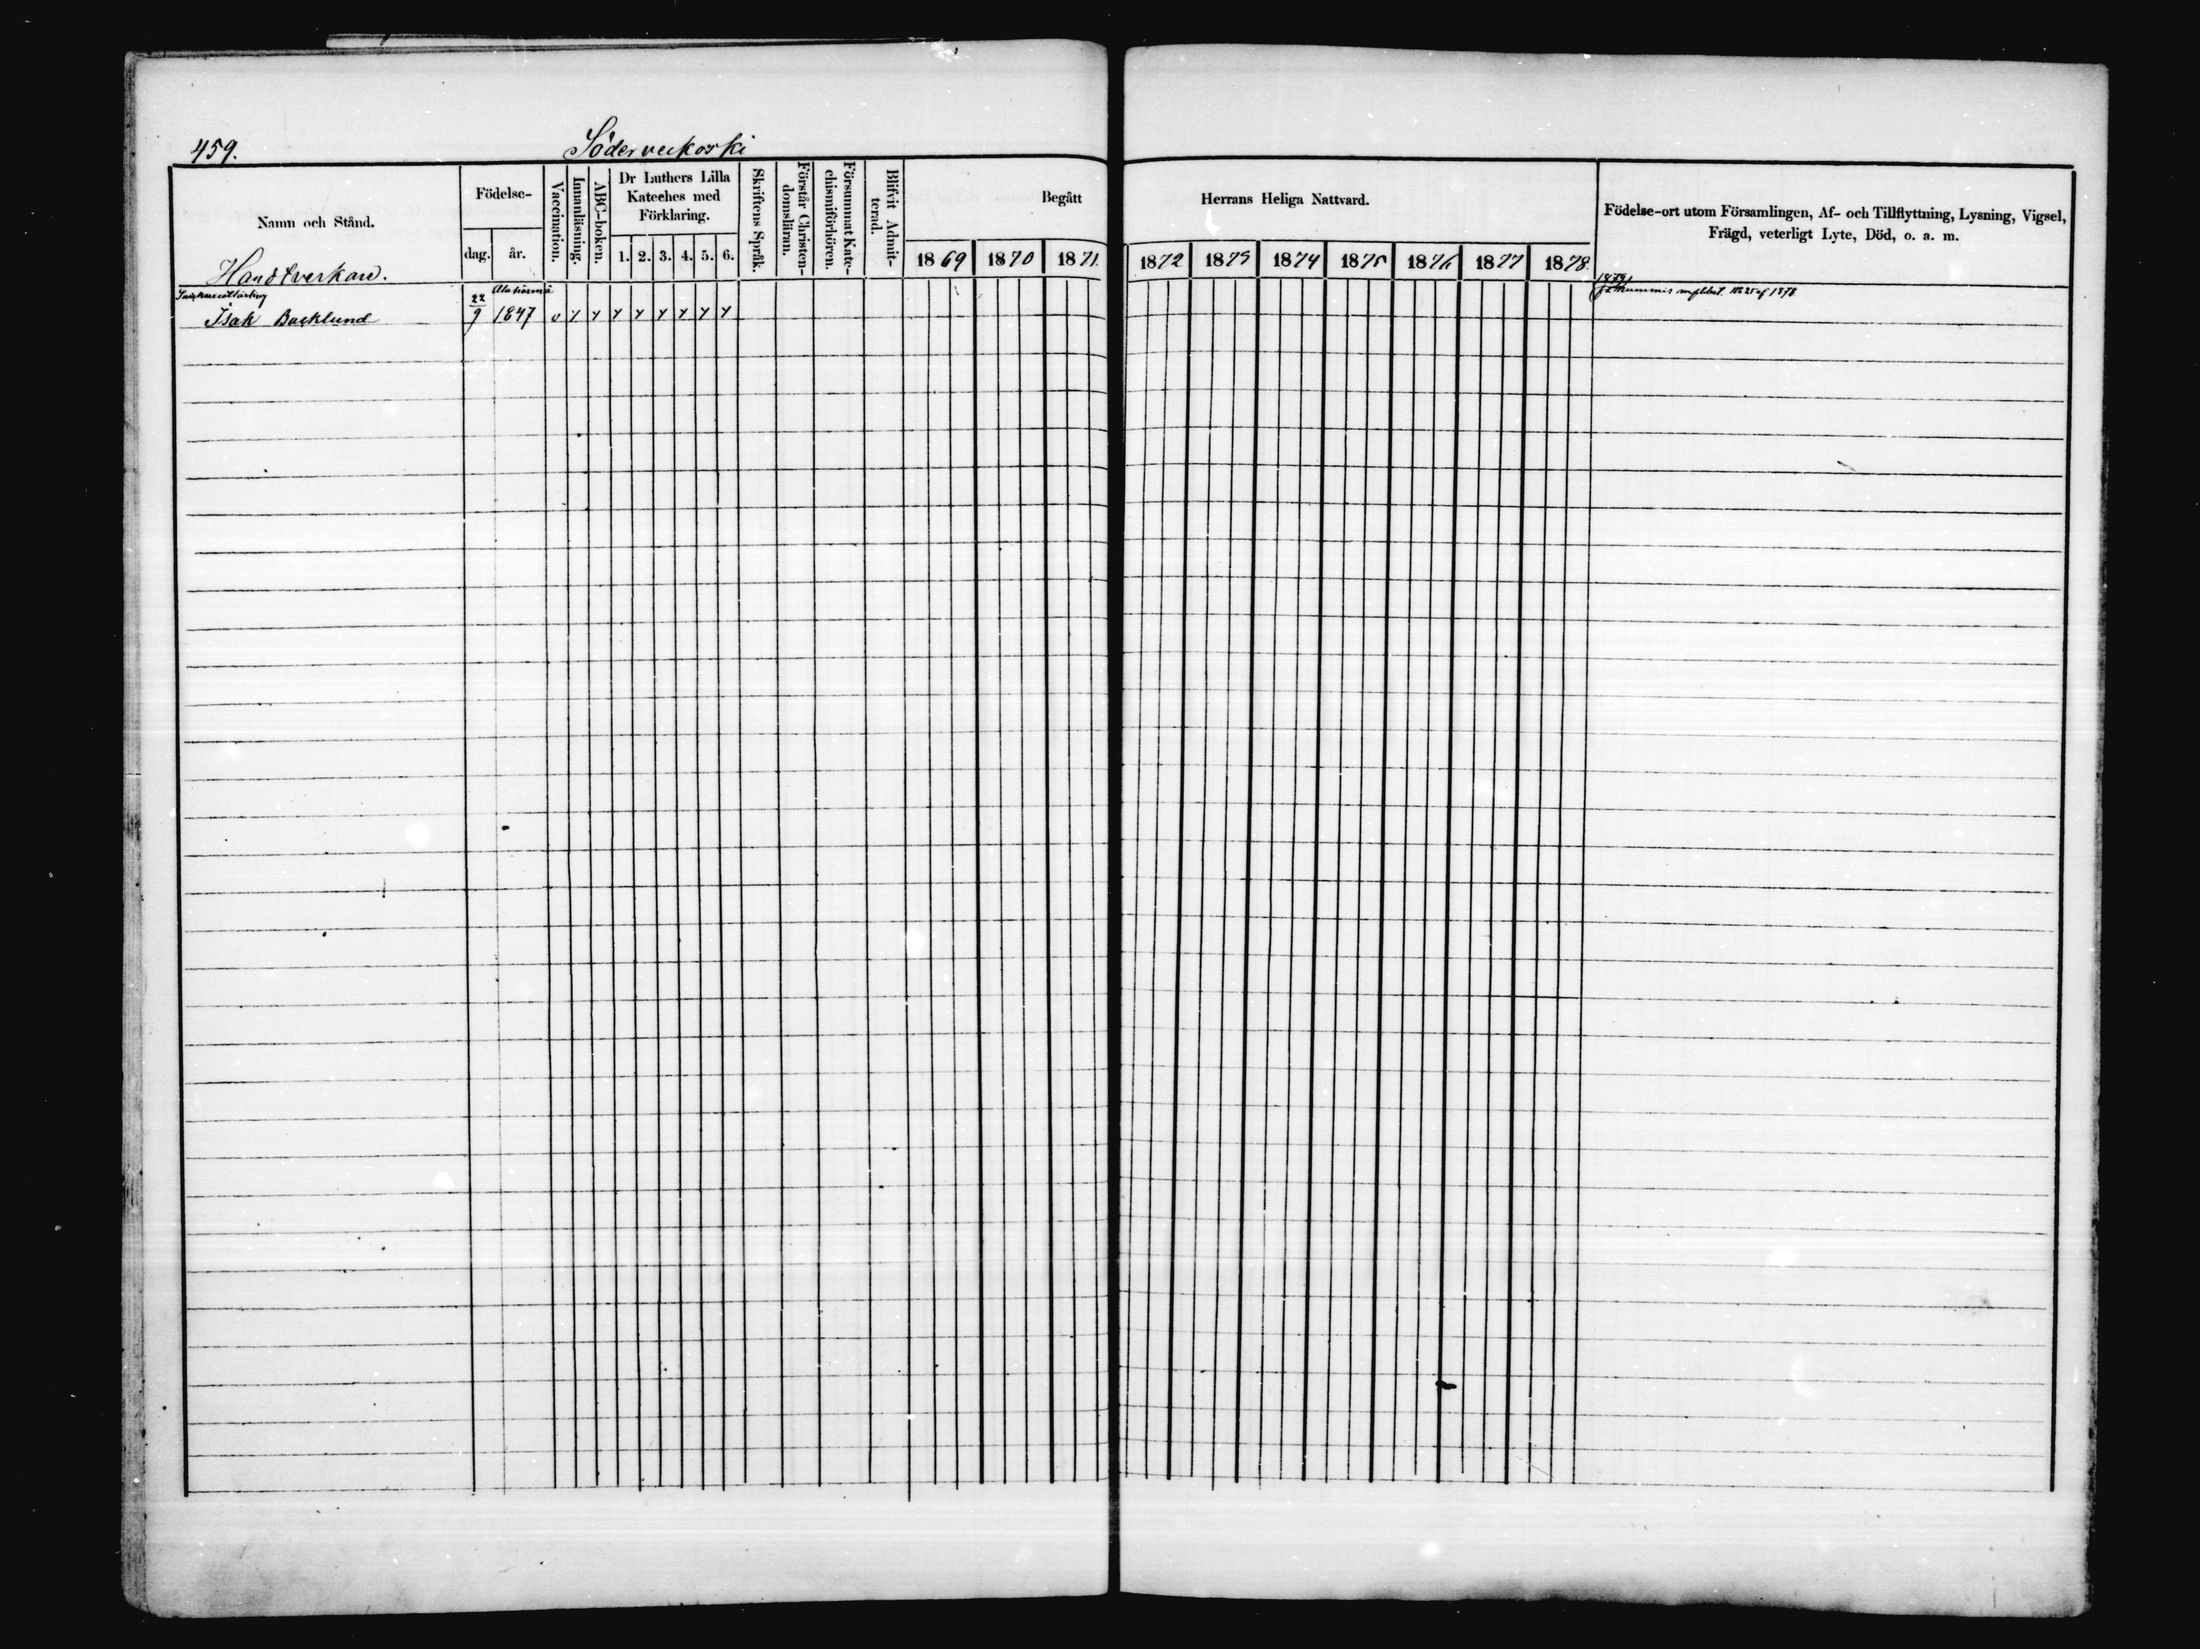 459.
Söderveckoski
Namn och Stånd.
Födelse-
dag.
år.
Vaccination.
Innanläsning.
ABC-boken.
Dr Luthers Lilla
Kateches med
Förklaring.
1. 2. 3. 4. 5. 6.
Skriftens Språk.
Förstår Christen-
domsläran.
Försummat Kate-
chismiförhören.
Blifvit Admit-
terad.
Begått Herrans Heliga Nattvard.
1869 1870 1871. 1872 1873 1874 1875 1876 1877 1878.
Födelse-ort utom Församlingen, Af- och Tillflyttning, Lysning, Vigsel,
Frägd, veterligt Lyte, Död, o. a. m.
Handtverkare.
Alahärmä
Isak Backlund 22/9 1847
1878